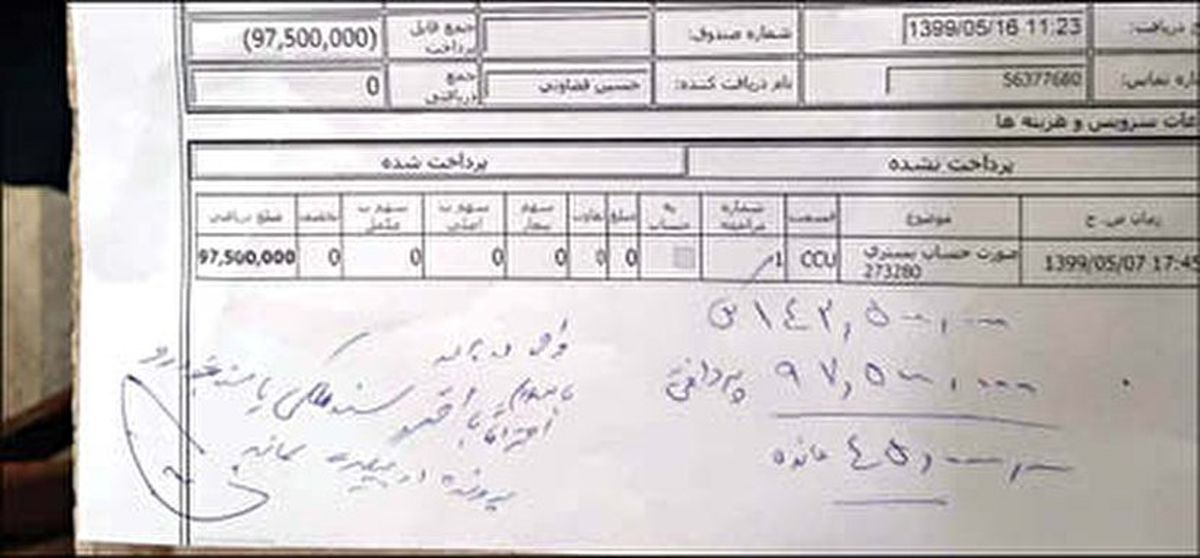 دریافت: 1399/05/16 11:23 شماره صندوق: جمع قابل پرداخت (97,500,000)
تماس: 56377680 نام دریافت کننده: حسین قضاوتی جمع دریافتی 0
سرویس و هزینه ها
پرداخت نشده پرداخت شده
زمان ص.ح موضوع قسمت شماره مراجعه به حساب مبلغ تفاوت سهم بیمار سهم ب اصلی سهم ب مکمل تخفیف مبلغ دریافتی
1399/05/07 17:45 صورت حساب بستری 273280 CCU 1 0 0 0 0 0 0 97,500,000
۱۴۲,۵۰۰,۰۰۰
۹۷,۵۰۰,۰۰۰ پرداختی
۴۵,۰۰۰,۰۰۰ مانده
واحد
با سلام
احتراما با اخذ سند ملکی یا سند خودرو
پرونده